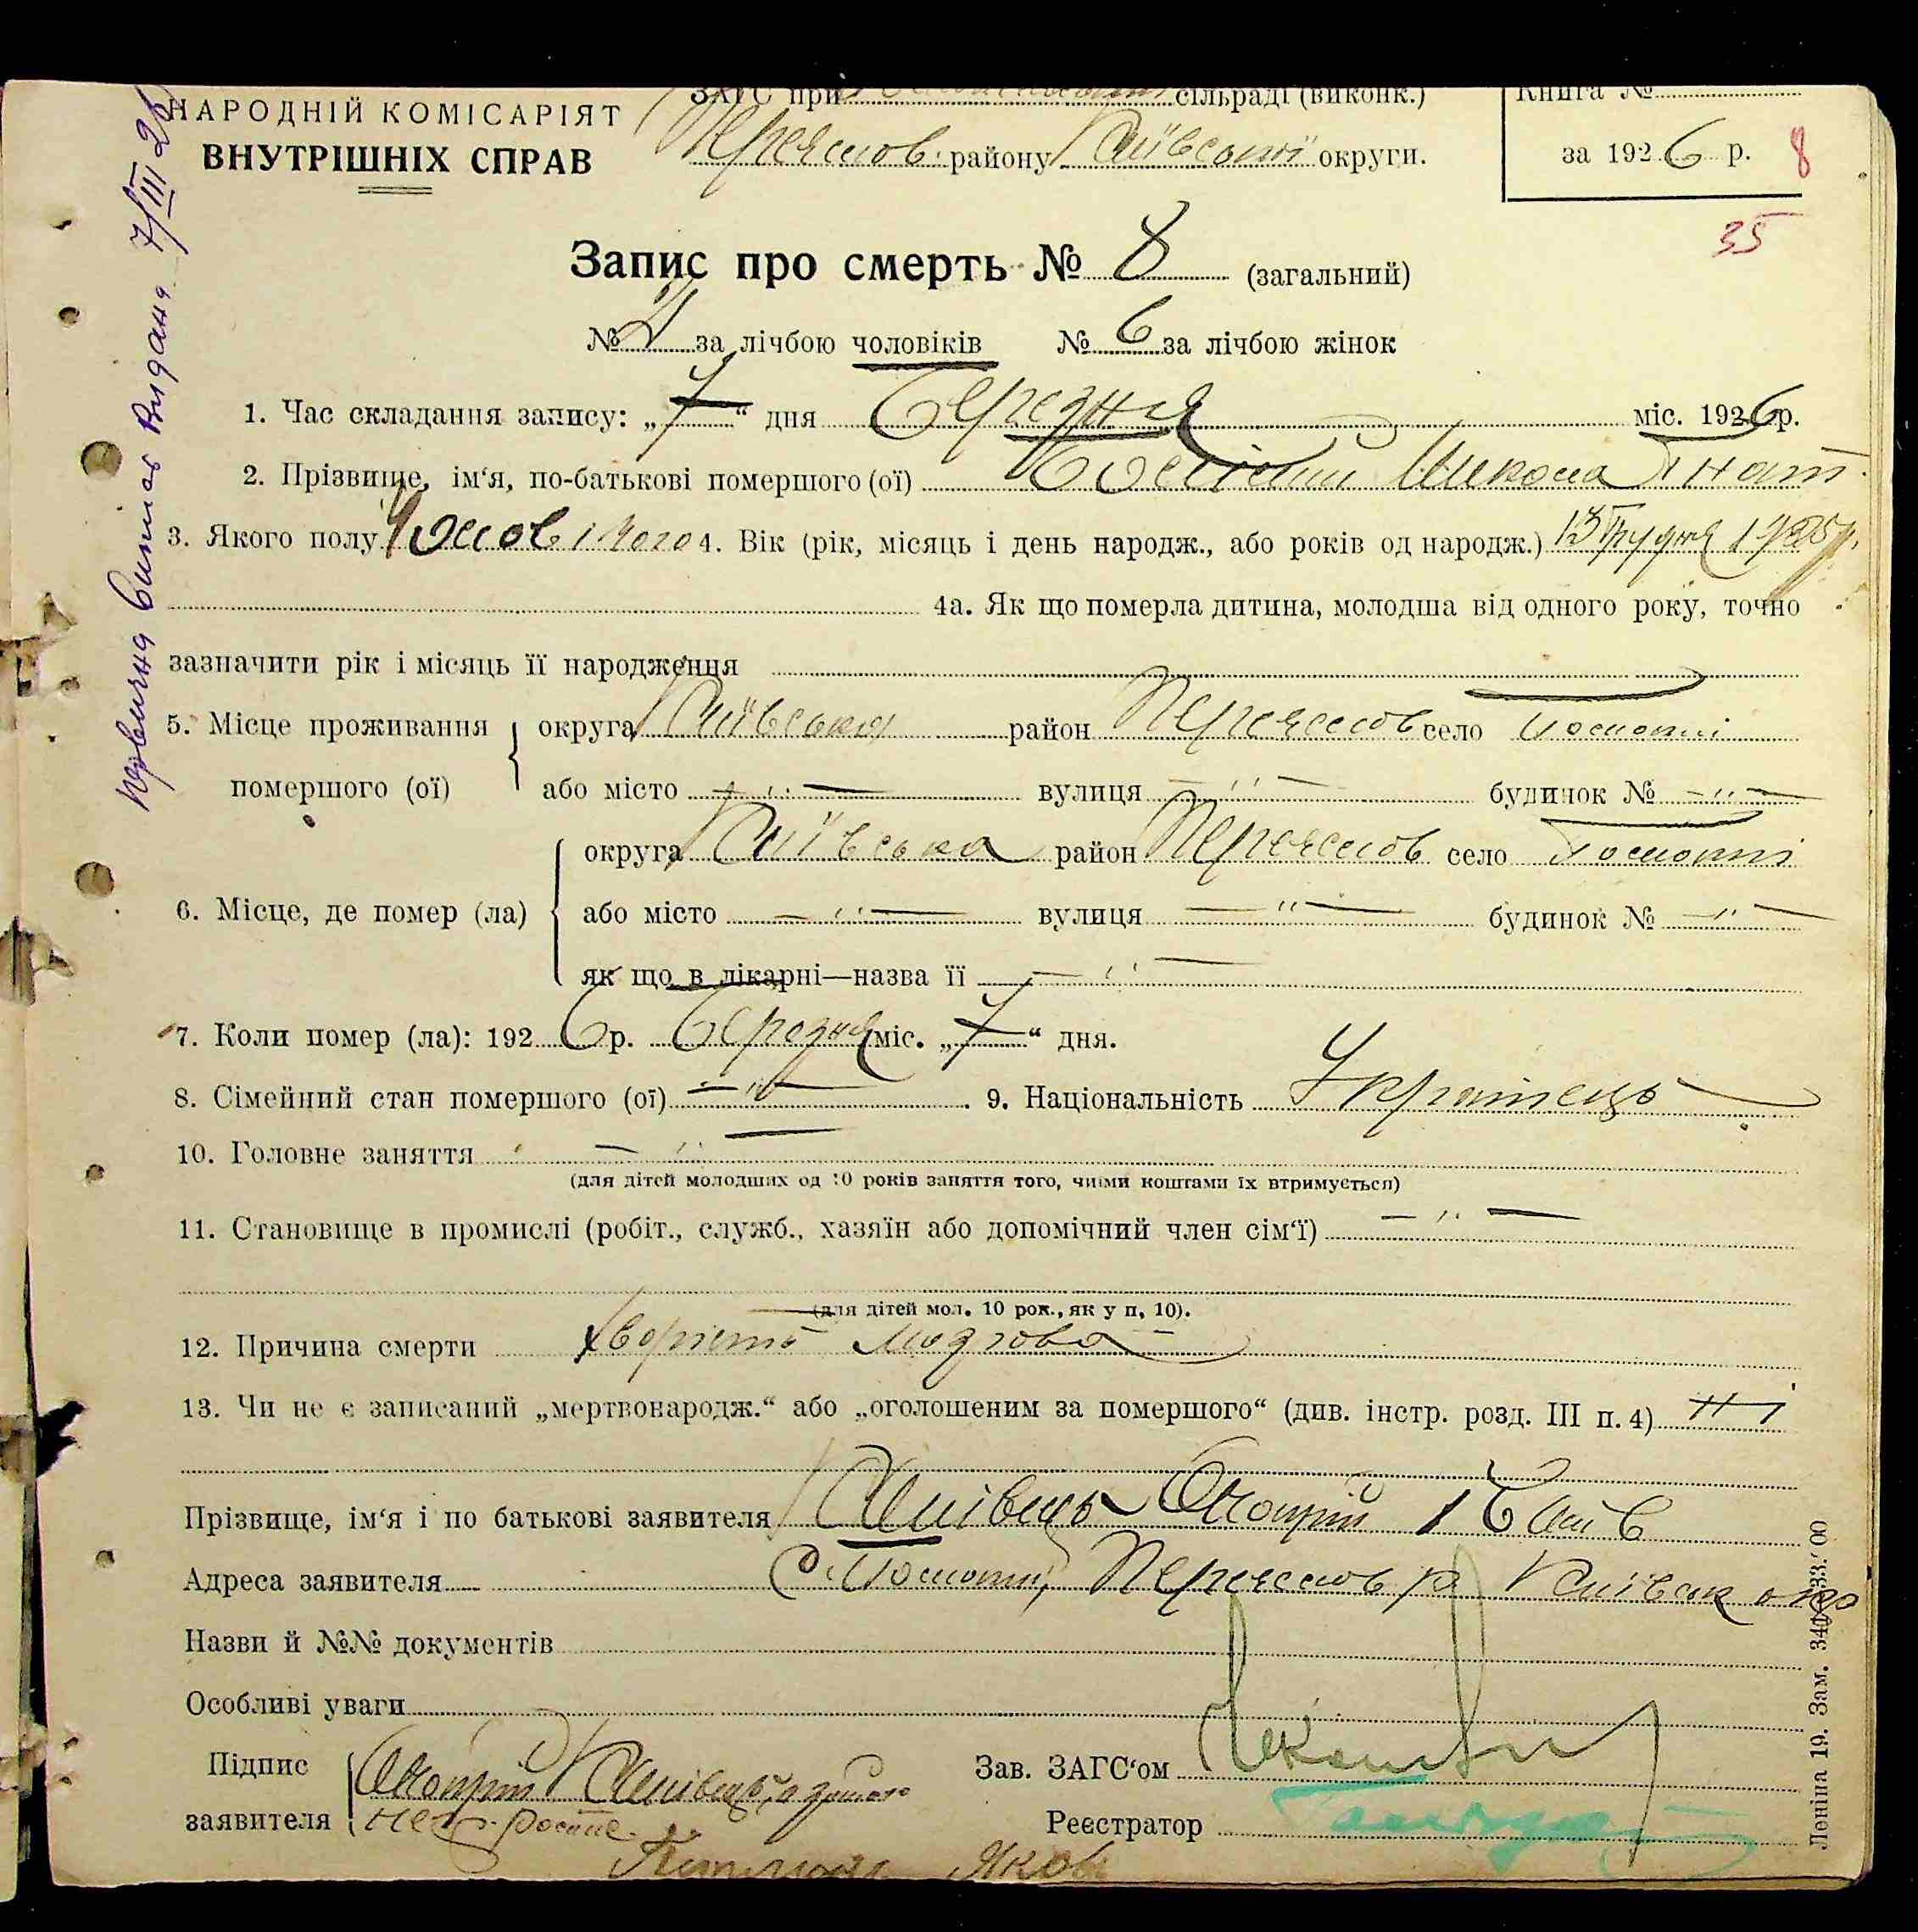 НАРОДНІЙ КОМІСАРІЯТ
ВНУТРІШНІХ СПРАВ
ЗАГС при сільраді (виконк.)
Переяслов. району Київської округи.
Книга №
за 1926 р. 8
35
Запис про смерть № 8 (загальний)
№ 2 за лічбою чоловіків № 6 за лічбою жінок
1. Час складання запису: „7“ дня Березня міс. 1926 р.
2. Прізвище, ім‘я, по-батькові помершого (ої) Микола Гнат.
3. Якого полу Чолов 4. Вік (рік, місяць і день народж., або років од народж.) 15 грудня 1925 р.
4а. Як що померла дитина, молодша від одного року, точно
зазначити рік і місяць її народження
5. Місце проживання помершого (ої) округа Київська район Переяслов село
або місто — " — вулиця — " — будинок № — " —
6. Місце, де помер (ла) округа Київська район Переяслов село
або місто — " — вулиця — " — будинок № — " —
як що в лікарні—назва її — " —
7. Коли помер (ла): 1926 р. Березня міс. „7“ дня.
8. Сімейний стан помершого (ої) — " — . 9. Національність Українець
10. Головне заняття — " —
(для дітей молодших од 10 років заняття того, чиїми коштами їх втримується)
11. Становище в промислі (робіт., служб., хазяїн або допомічний член сім‘ї) — " —
(для дітей мол. 10 рок., як у п. 10).
12. Причина смерти Хворість мозгова
13. Чи не є записаний „мертвонародж.“ або „оголошеним за помершого“ (див. інстр. розд. III п. 4) Ні
Прізвище, ім‘я і по батькові заявителя
Адреса заявителя с. Переяслов р. Київськ окр
Назви й №№ документів
Особливі уваги
Підпис заявителя
Зав. ЗАГС‘ом
Реєстратор
Яков
Леніна 19. Зам.
Видана 7/III 26